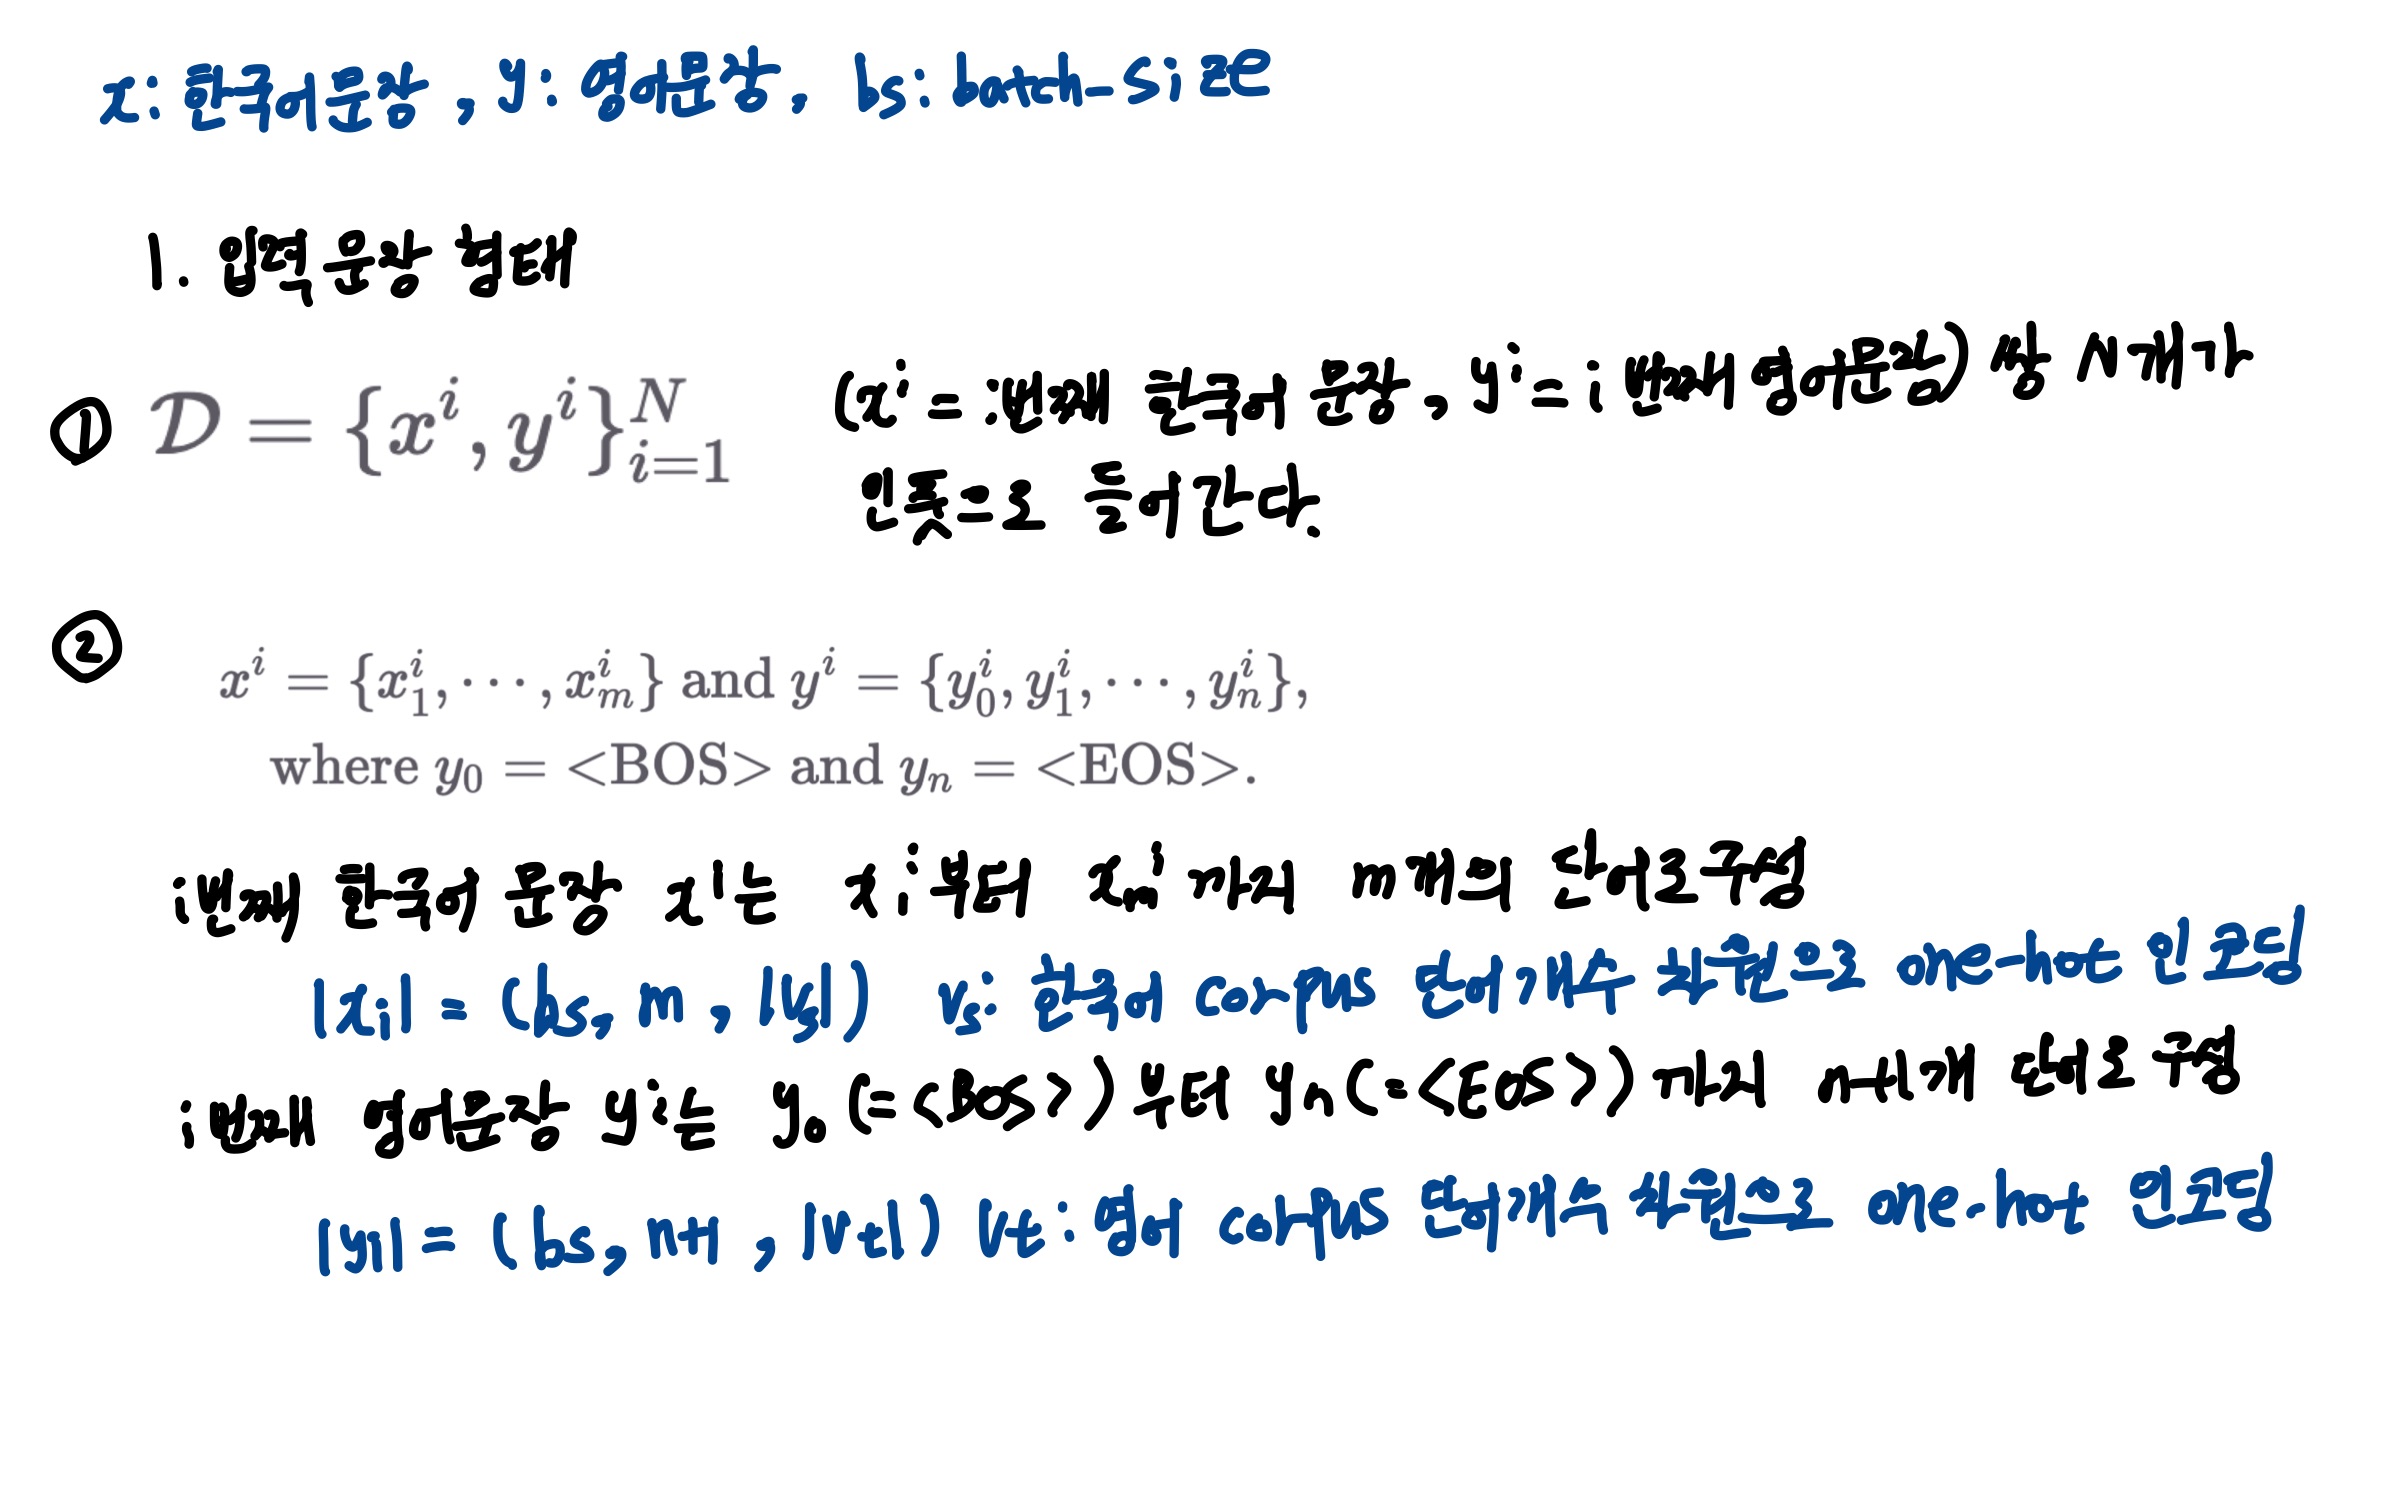 x: 한국어문장, y: 영어문장, bs: batch-size
1. 입력 문장 형태
① D = {x^i, y^i}_{i=1}^N
(x^i = i번째 한국어 문장, y^i = i 번째 영어문장) 쌍 N개가
인풋으로 들어간다.
②
x^i = {x_1^i, ···, x_m^i} and y^i = {y_0^i, y_1^i, ···, y_n^i},
where y_0 = <BOS> and y_n = <EOS>.
i번째 한국어 문장 x^i는 x_1^i부터 x_m^i 까지 m개의 단어로 구성
|x_i| = (bs, m, |V_s|) V_s: 한국어 corpus 단어개수 차원으로 one-hot 인코딩
i번째 영어문장 y^i는 y_0 (=<BOS>) 부터 y_n (=<EOS>) 까지 n+1개 단어로 구성
|y_i| = (bs, n+1, |V_t|) V_t: 영어 corpus 단어개수 차원으로 one-hot 인코딩